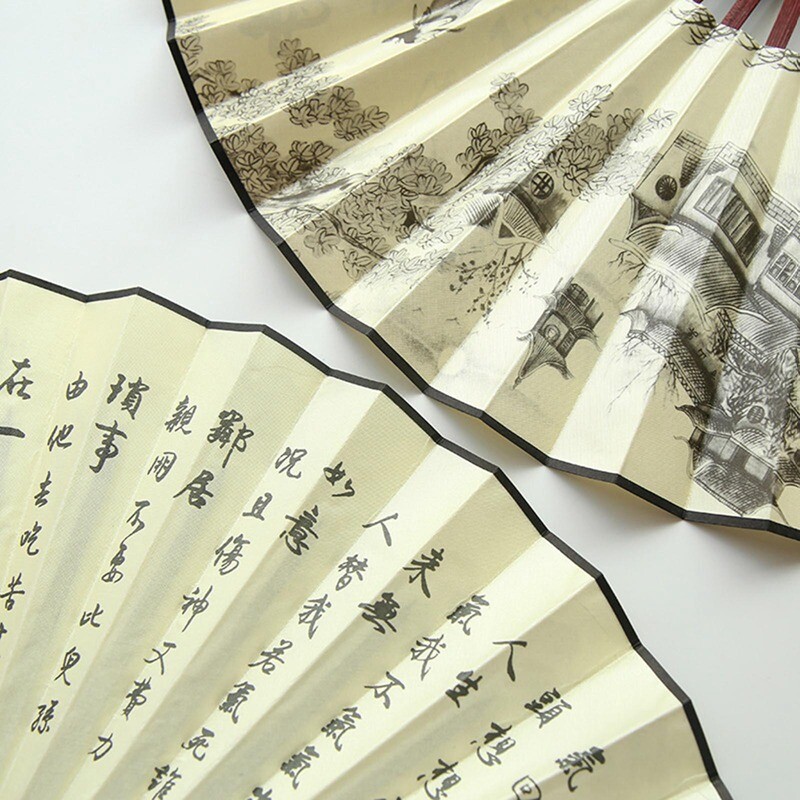 氣回
頭想想
人生
氣我不氣氣
來無
人替我若氣死誰
如意
況且傷神又費力
鄰居
親朋不要比兒孫
瑣事
由他去吃苦
在一